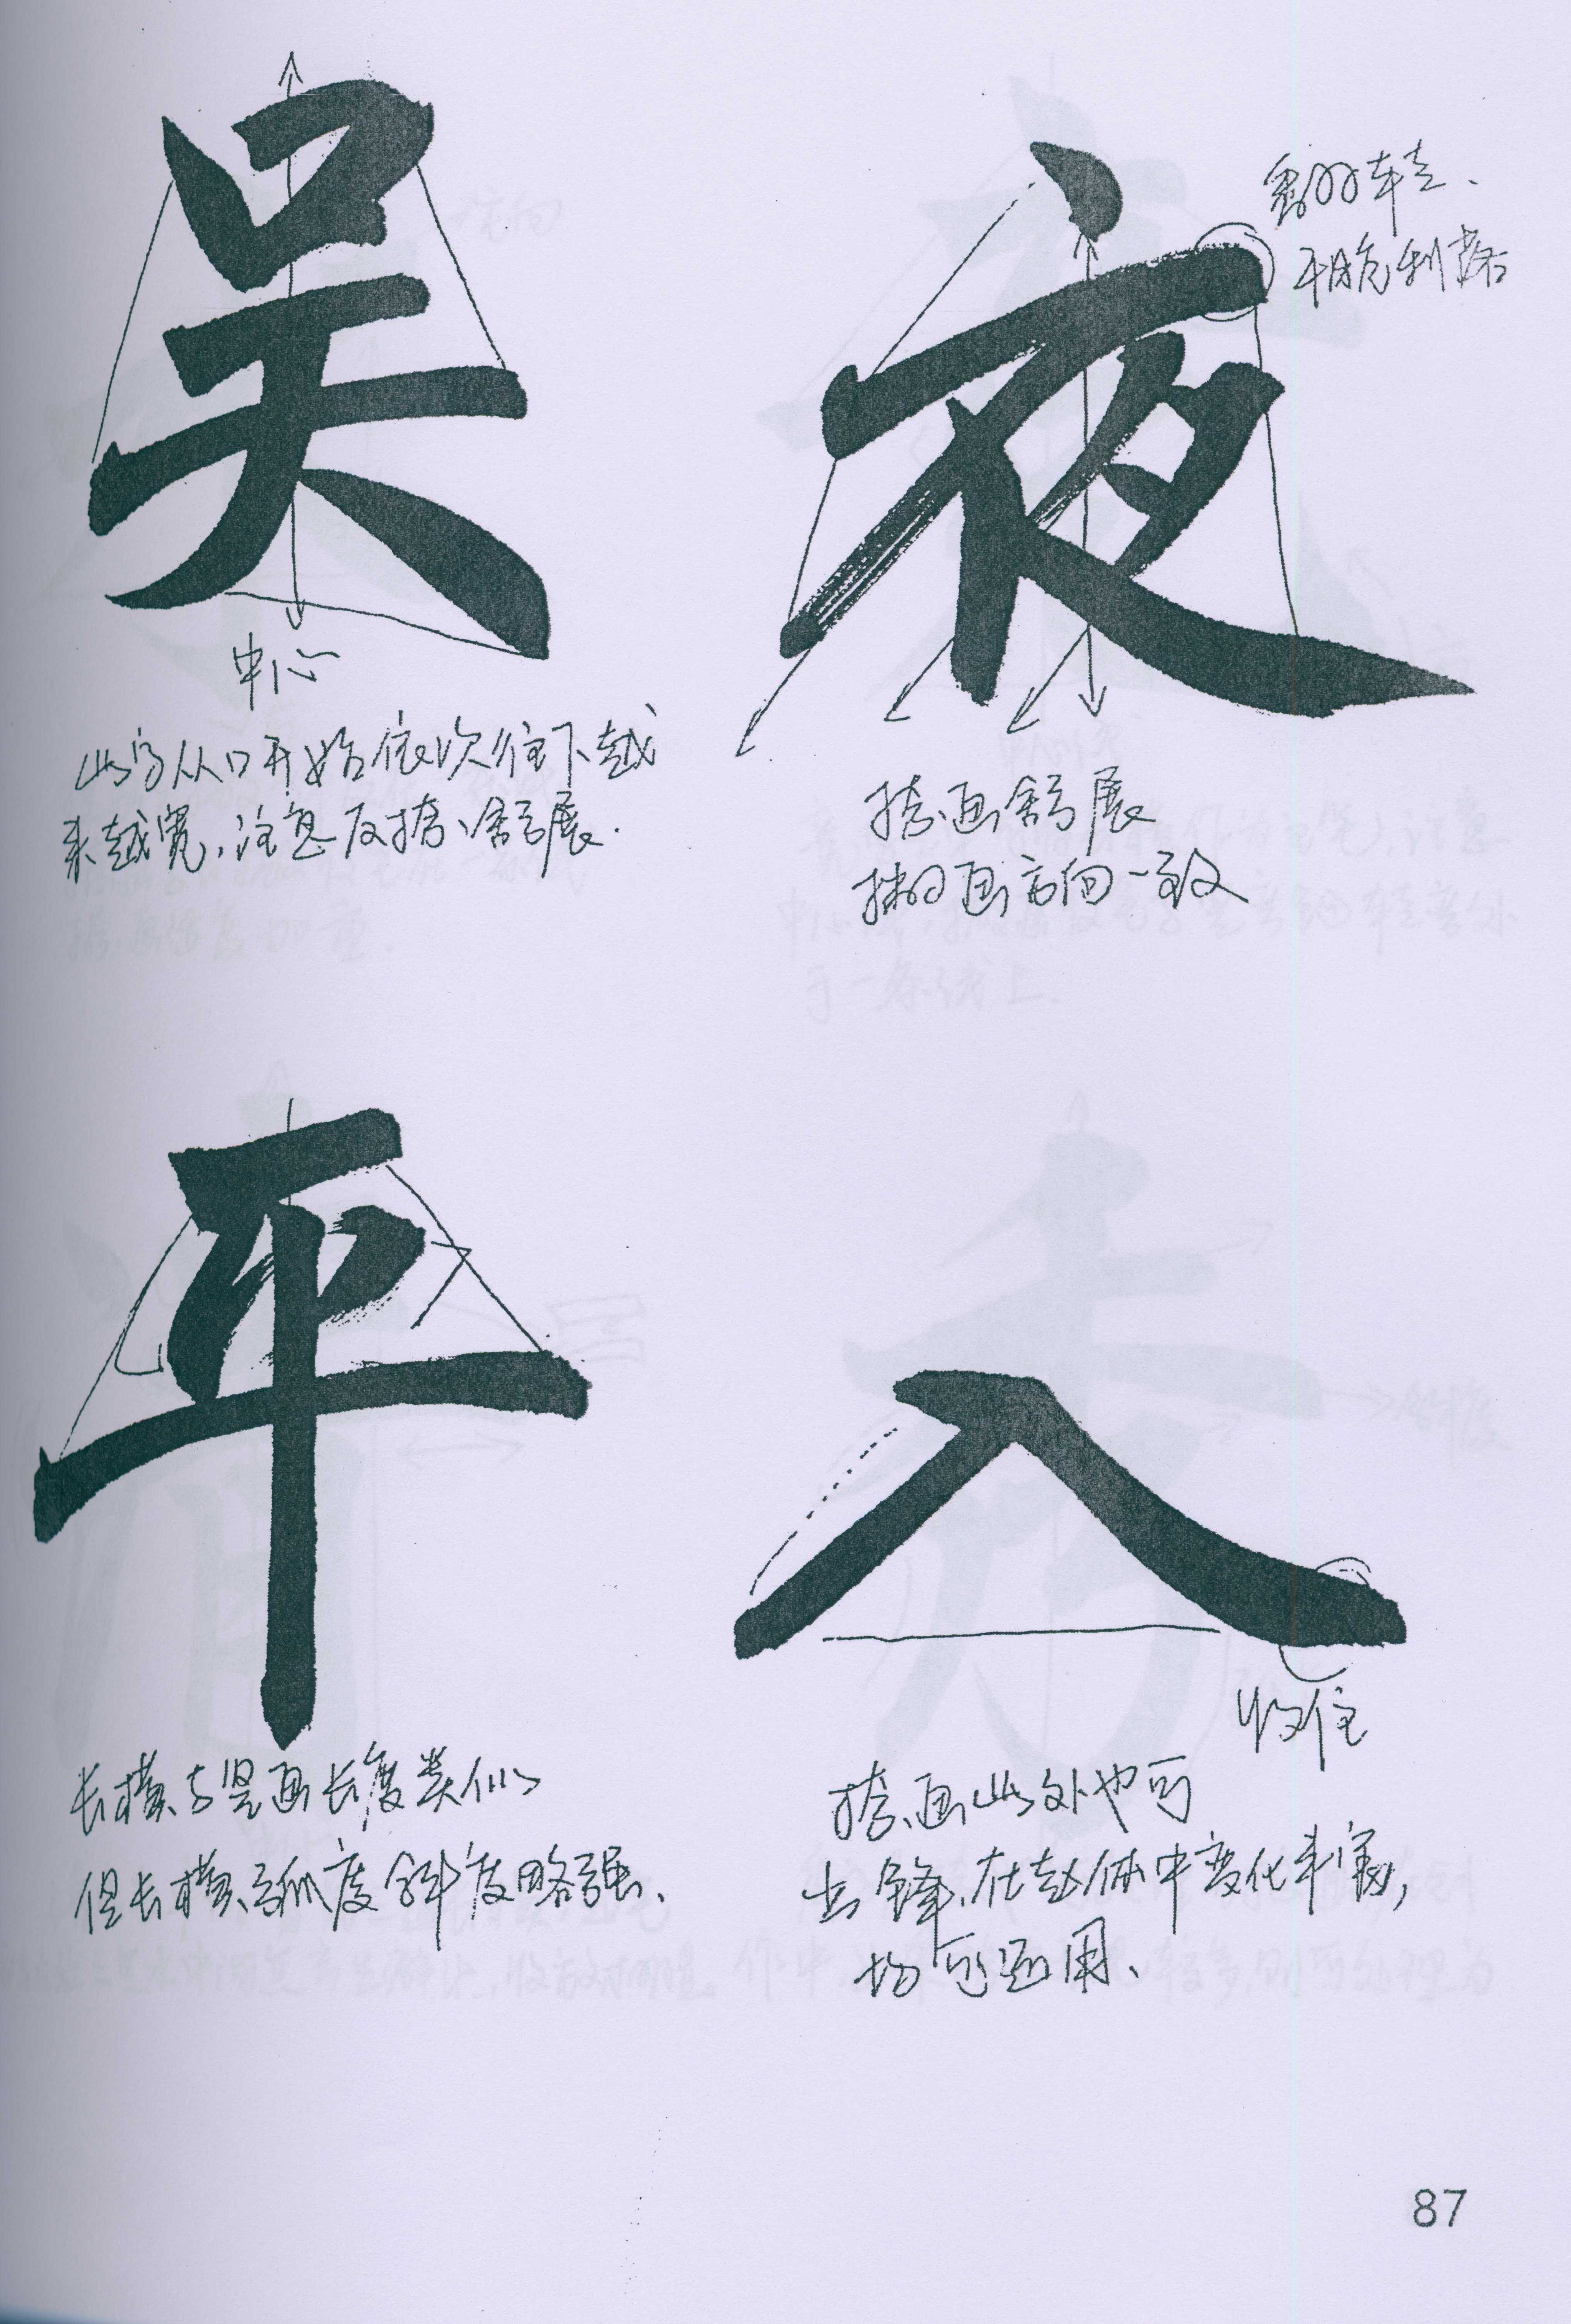 吴
中心
此字从口开始依次往下越
来越宽,注意反捺、舒展.
夜
翻转、
干脆利落
捺画舒展
撇画方向一致
平
长横与竖画长度类似
但长横弧度斜度略强、
入
收住
捺画此处也可
出锋,在赵体中变化丰富,
均可运用、
87